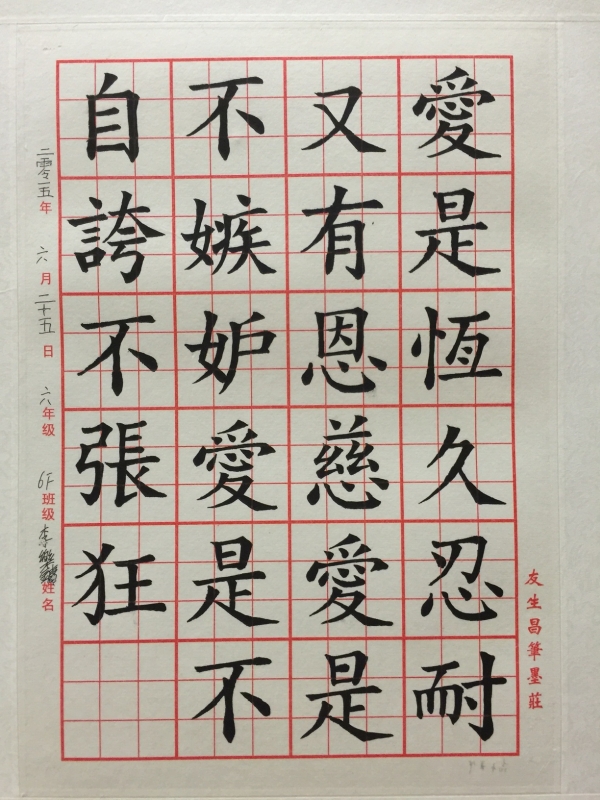 愛是恆久忍耐
又有恩慈愛是
不嫉妒愛是不
自誇不張狂
二零一五年 六月二十五日 六年级 6F班级 李 姓名
友生昌筆墨莊